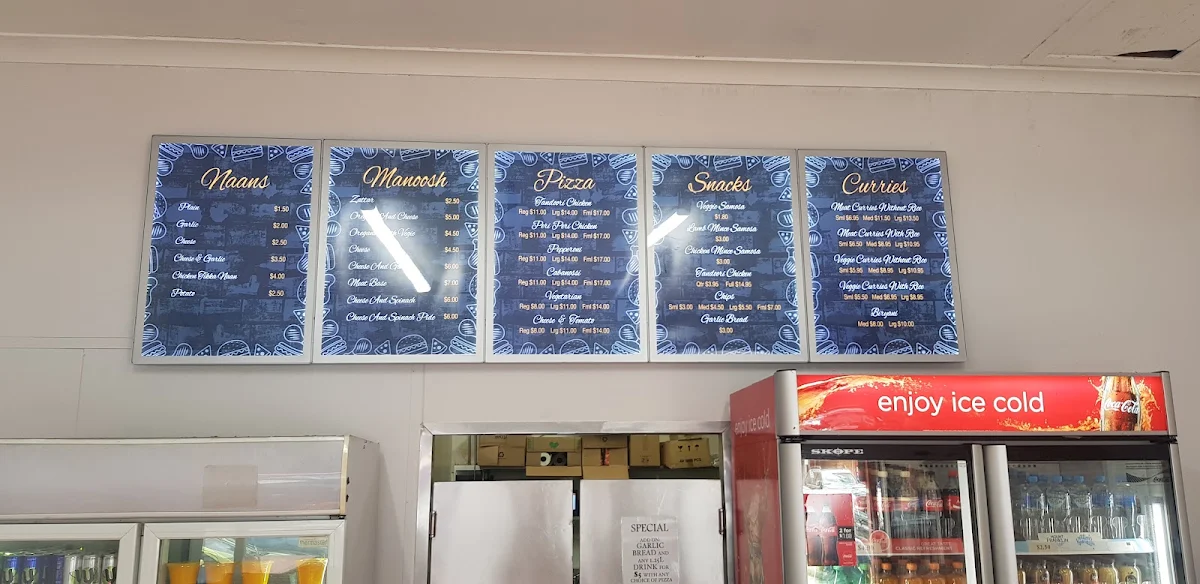 Naans
Plain $1.50
Garlic $2.00
Cheese $2.50
Cheese & Garlic $3.50
Chicken Tikka Naan $4.00
Potato $2.50
Manoosh
Zattar $2.50
And Cheese $5.00
Vegie $4.50
Cheese $4.50
Cheese And $6.00
Meat Base $7.00
Cheese And Spinach $6.00
Cheese And Spinach Pide $6.00
Pizza
Tandoori Chicken
Reg $11.00 Lrg $14.00 Fml $17.00
Peri Peri Chicken
Reg $11.00 Lrg $14.00 Fml $17.00
Pepperoni
Reg $11.00 Lrg $14.00 Fml $17.00
Cabanossi
Reg $11.00 Lrg $14.00 Fml $17.00
Vegetarian
Reg $8.00 Lrg $11.00 Fml $14.00
Cheese & Tomato
Reg $8.00 Lrg $11.00 Fml $14.00
Snacks
Veggie Samosa
$1.80
Lamb Mince Samosa
$3.00
Chicken Mince Samosa
$3.00
Tandoori Chicken
Qtr $3.95 Full $14.95
Chips
Sml $3.00 Med $4.50 Lrg $5.50 Fml $7.00
Garlic Bread
$3.00
Curries
Meat Curries Without Rice
Sml $6.95 Med $11.50 Lrg $13.50
Meat Curries With Rice
Sml $6.50 Med $8.95 Lrg $10.95
Veggie Curries Without Rice
Sml $5.95 Med $8.95 Lrg $10.95
Veggie Curries With Rice
Sml $5.50 Med $6.95 Lrg $8.95
Biryani
Med $8.00 Lrg $10.00
enjoy ice cold
enjoy ice cold
Coca-Cola
SKOPE
2 for
SPECIAL
ADD ON
GARLIC
BREAD AND
ANY 1.25L
DRINK FOR
$5 WITH ANY
CHOICE OF PIZZA
MOUNT
FRANKLIN